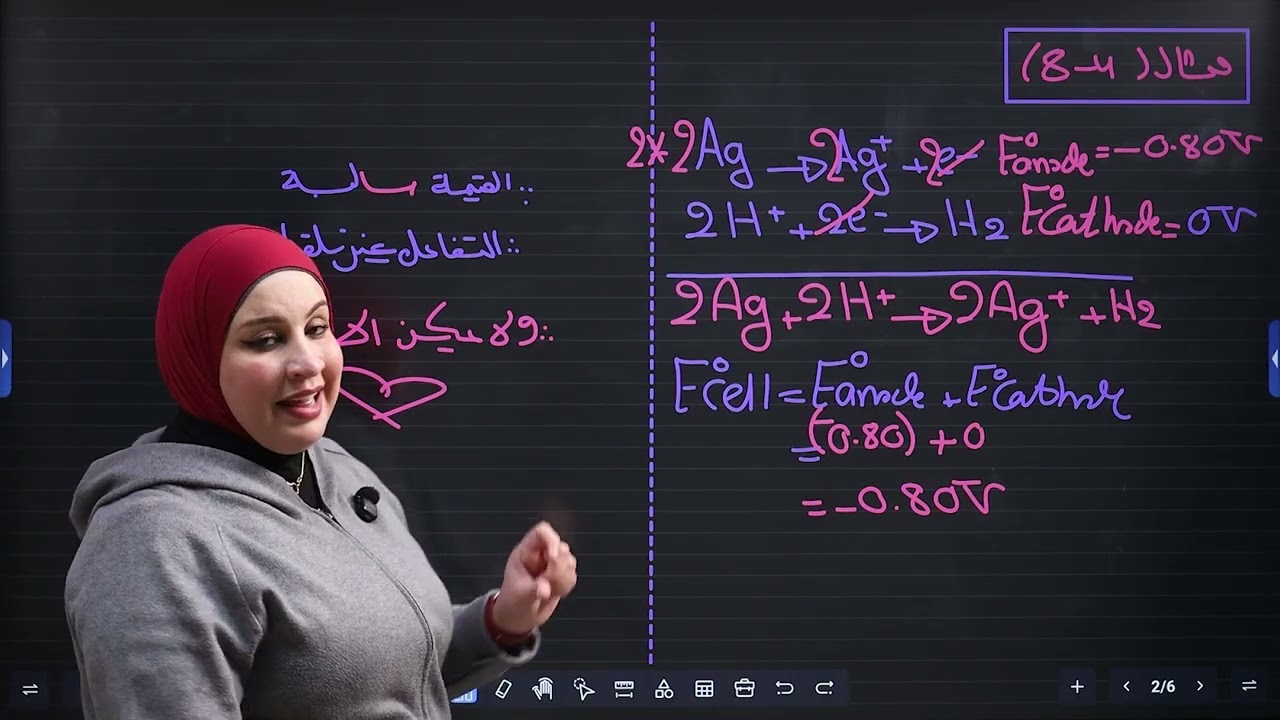 مثال (4-8)
2x 2Ag → 2Ag⁺ + 2e⁻ E°anode = -0.80V
2H⁺ + 2e⁻ → H₂ E°Cathode = 0V
2Ag + 2H⁺ → 2Ag⁺ + H₂
E°Cell = E°anode + E°Cathode
= (0.80) + 0
= -0.80V
∴ القيمة سالبة
∴ التفاعل غير
∴ ولا يمكن
2/6